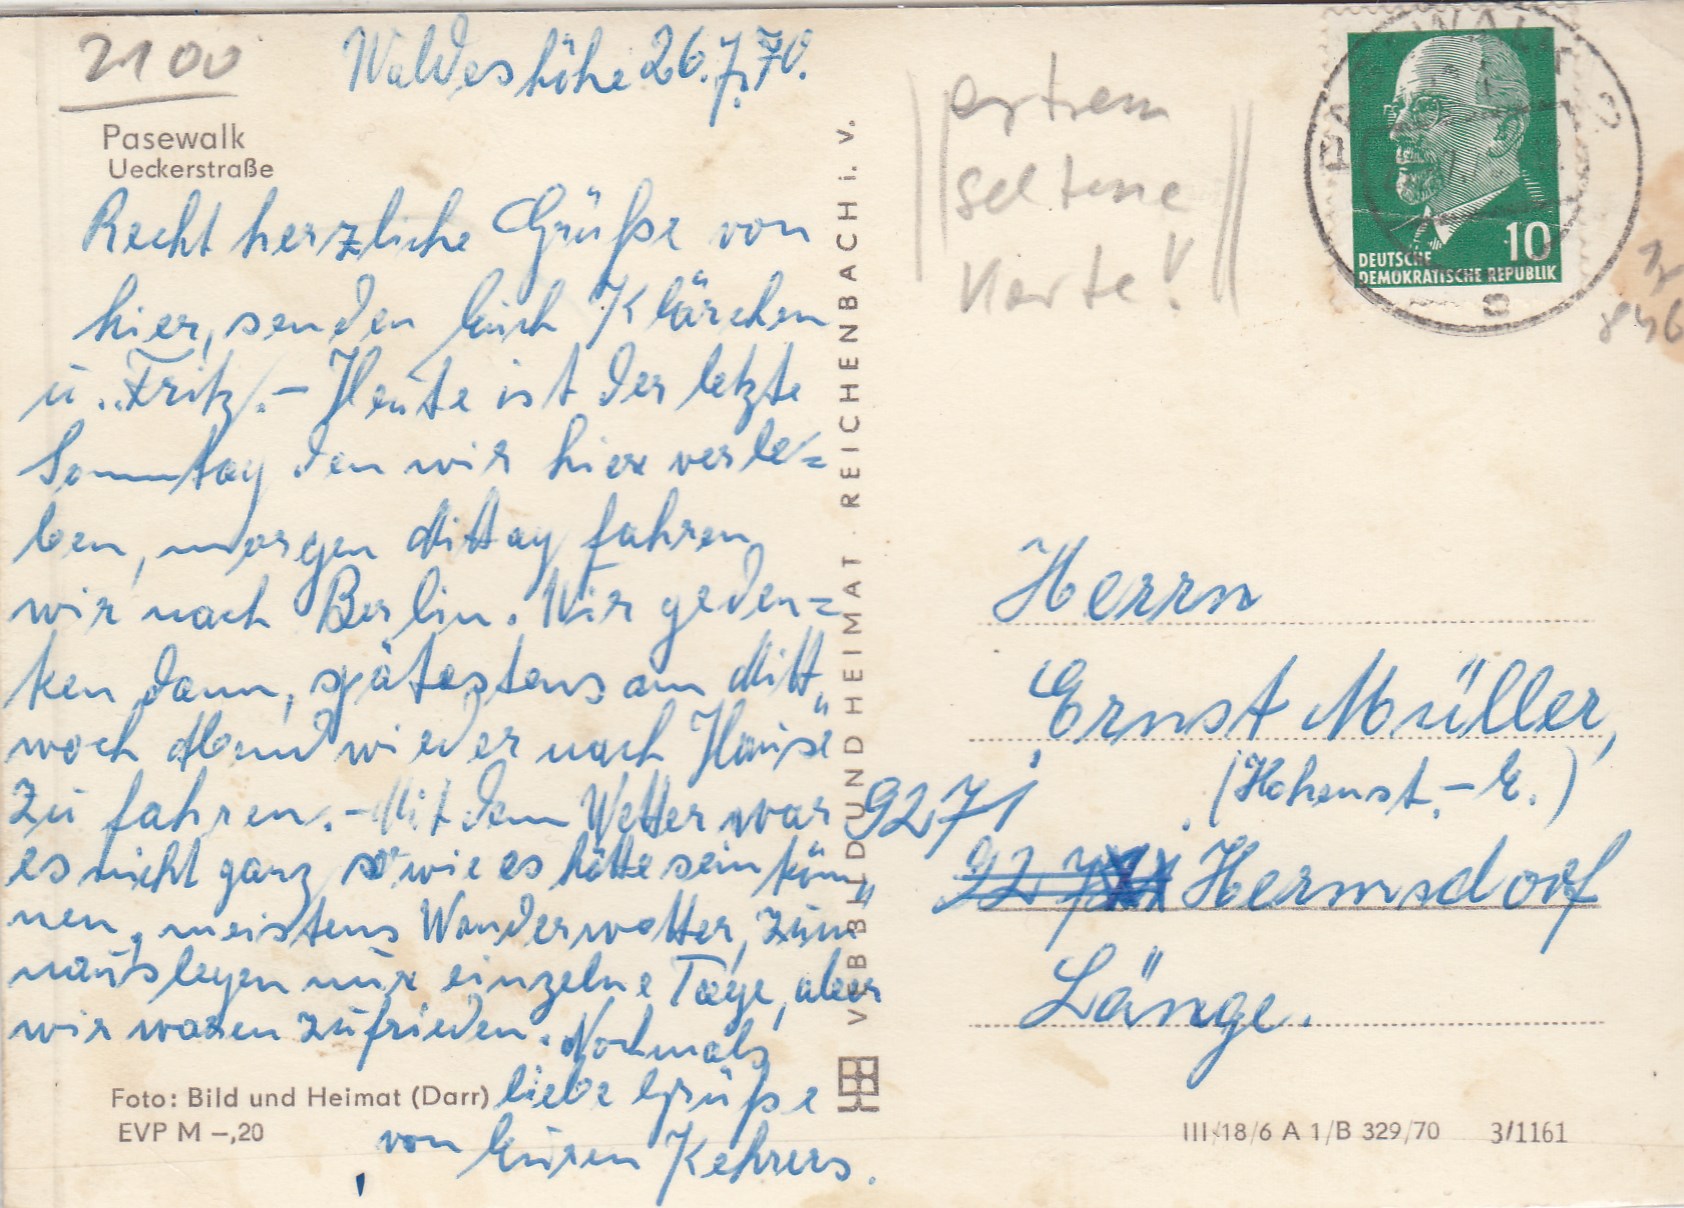 2100
Waldeshöhe 26.7.70.
Pasewalk
Ueckerstraße
Recht herzliche Grüße von
hier, senden Euch Klärchen
u. Fritz. – Heute ist der letzte
Sonntag den wir hier verle=
ben, morgen Mittag fahren
wir nach Berlin. Wir geden=
ken dann, spätestens am Mitt„
woch Abend wieder nach Hause
zu fahren. – Mit dem Wetter war
es nicht ganz so wie es hätte sein kön„
nen, meistens Wanderwetter, zum
nauslegen nur einzelne Tage, aber
wir waren zufrieden. Nochmals
liebe Grüße
von Euren Kehrers.
Foto: Bild und Heimat (Darr)
EVP M –,20
VEB BILD UND HEIMAT · REICHENBACH i. V.
extrem
seltene
Karte!
PASEWALK 2
10
DEUTSCHE
DEMOKRATISCHE REPUBLIK
Herrn
Ernst Müller,
(Hohenst.-E.)
9271
Hermsdorf
Länge.
III/18/6 A 1/B 329/70 3/1161